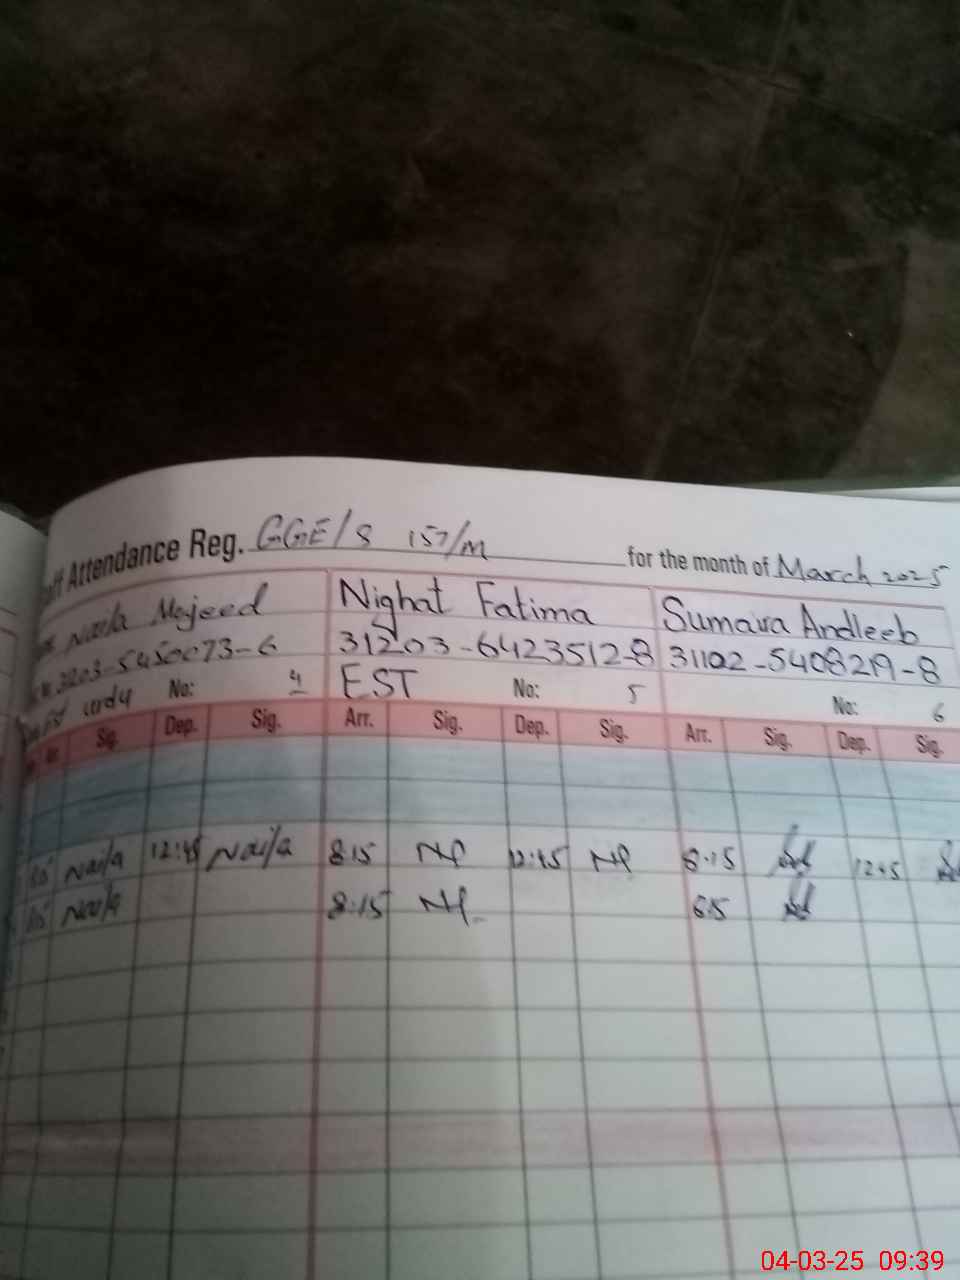 Attendance Reg. GGE/S 157/M for the month of March 2025
Naila Majeed Nighat Fatima Sumaira Andleeb
3203-5450073-6 31203-6423512-8 31102-5408219-8
urdu No: 4 EST No: 5 No: 6
Sig. Dep. Sig. Arr. Sig. Dep. Sig. Arr. Sig. Dep. Sig.
Naila 12:45 Naila 8:15 NF 12:45 NF 8:15 12:45
Naila 8:15 NF 8:15
04-03-25 09:39